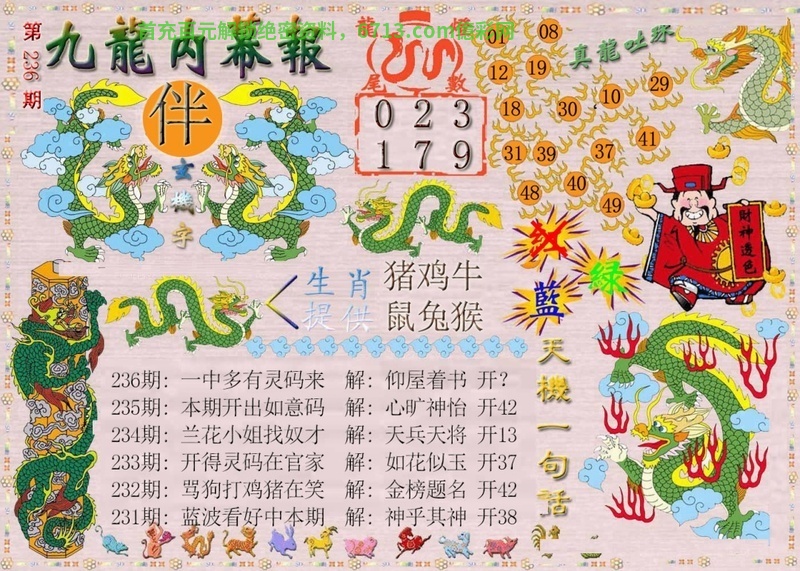 第236期
九龍内幕報
龍情
尾數
伴
玄機字
0 2 3
1 7 9
01 08
12 19
18 30 10 29
31 39 37 41
48 40 49
真龍吐珠
財神透色
红
藍
绿
生肖
提供
猪鸡牛
鼠兔猴
天機一句話
236期: 一中多有灵码来 解: 仰屋着书 开?
235期: 本期开出如意码 解: 心旷神怡 开42
234期: 兰花小姐找奴才 解: 天兵天将 开13
233期: 开得灵码在官家 解: 如花似玉 开37
232期: 骂狗打鸡猪在笑 解: 金榜题名 开42
231期: 蓝波看好中本期 解: 神乎其神 开38